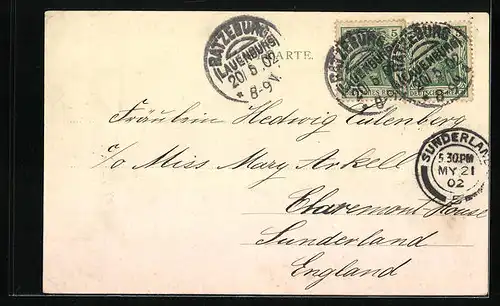 RATZEBURG
(LAUENBURG)
20/5 02
* 8-9 V.
KARTE.
5
RATZEBURG
(LAUENBURG)
RATZEBURG
(LAUENBURG)
20/5 02
Fräulein Hedwig Eulenberg
c/o Miss Mary Arkell
Claremont House
Sunderland
England
SUNDERLAND
5.30PM
MY 21
02